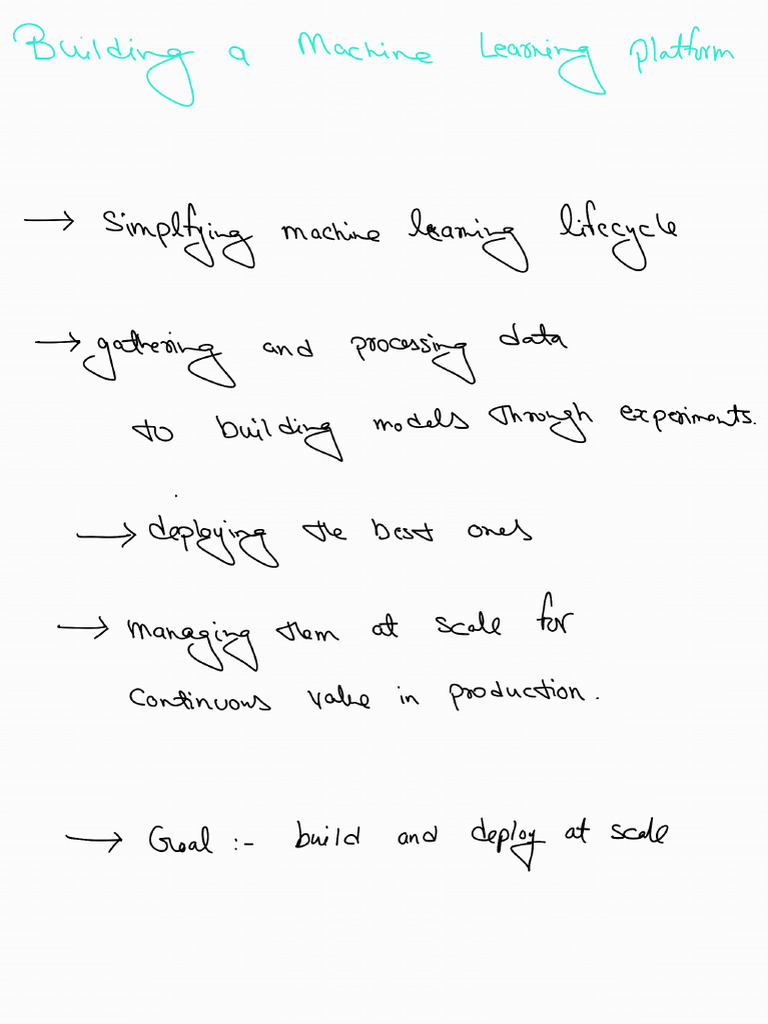 Building a Machine Learning platform
→ Simplifying machine learning lifecycle
→ gathering and processing data
to building models through experiments.
→ deploying the best ones
→ managing them at scale for
continuous value in production.
→ Goal :- build and deploy at scale